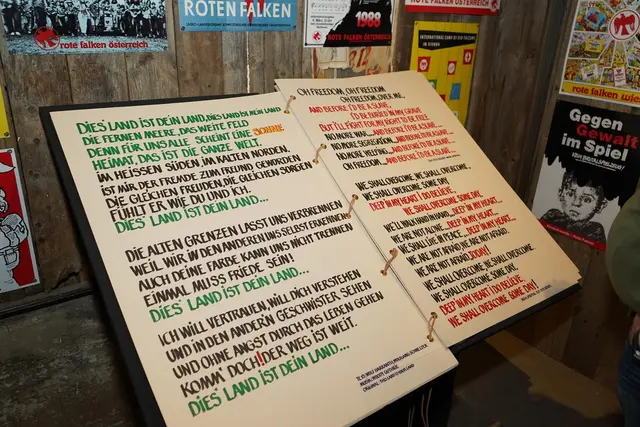 rote falken österreich
ROTEN FALKEN
1988
ROTE FALKEN ÖSTERREICH
rote falken wien
Gegen
Gewalt
im
Spiel
DIES' LAND IST DEIN LAND, DIES' LAND IST MEIN LAND
DIE FERNEN MEERE, DAS WEITE FELD
DENN FÜR UNS ALLE SCHEINT EINE SONNE
HEIMAT, DAS IST DIE GANZE WELT.
IM HEISSEN SÜDEN IM KALTEN NORDEN,
IST MIR DER FREMDE ZUM FREUND GEWORDEN
DIE GLEICHEN FREUDEN, DIE GLEICHEN SORGEN
FÜHLT ER WIE DU UND ICH.
DIES' LAND IST DEIN LAND...
DIE ALTEN GRENZEN LASST UNS VERBRENNEN
WEIL WIR IN DEN ANDERN UNS SELBST ERKENNEN
AUCH DEINE FARBE KANN UNS NICHT TRENNEN
EINMAL MUSS FRIEDE SEIN!
DIES' LAND IST DEIN LAND...
ICH WILL VERTRAUEN WILL DICH VERSTEHEN
UND IN DEN ANDER'N GESCHWISTER SEHEN
UND OHNE ANGST DURCH DAS LEBEN GEHEN
KOMM' DOCH! DER WEG IST WEIT.
DIES' LAND IST DEIN LAND...
OH FREEDOM, OH FREEDOM
OH FREEDOM, OVER ME,
AND BEFORE I'D BE A SLAVE,
I'D BE BURIED IN MY GRAVE
BUT I'LL FIGHT FOR MY RIGHT TO BE FREE
NO MORE WAR... AND BEFORE I'D BE A SLAVE...
NO MORE SEGREGATION... AND BEFORE I'D BE A SLAVE...
NO MORE WEEPING... AND BEFORE I'D BE A SLAVE...
OH FREEDOM... AND BEFORE I'D BE A SLAVE...
WE SHALL OVERCOME, WE SHALL OVERCOME
WE SHALL OVERCOME SOME DAY.
DEEP IN MY HEART I DO BELIEVE
WE SHALL OVERCOME SOME DAY.
WE'LL WALK HAND IN HAND... DEEP IN MY HEART...
WE ARE NOT ALONE... DEEP IN MY HEART...
WE SHALL LIVE IN PEACE... DEEP IN MY HEART...
WE ARE NOT AFRAID, WE ARE NOT AFRAID,
WE ARE NOT AFRAID, TODAY!
WE SHALL OVERCOME, WE SHALL OVERCOME
WE SHALL OVERCOME SOME DAY.
DEEP IN MY HEART I DO BELIEVE
WE SHALL OVERCOME SOME DAY!